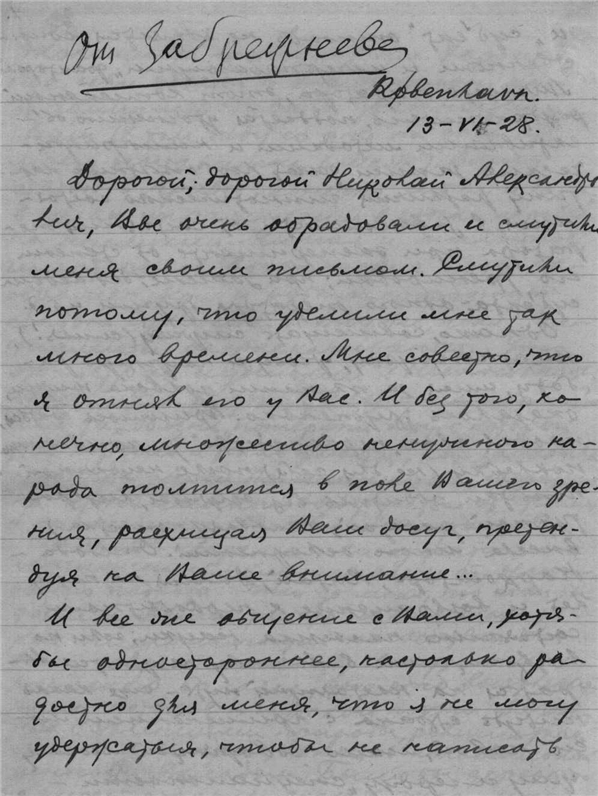 От Забрежнева
København.
13-VI-28.
Дорогой, дорогой Николай Александро
вич, Вы очень обрадовали и смутили
меня своим письмом. Смутили
потому, что уделили мне так
много времени. Мне совестно, что
я отнял его у Вас. И без того, ко
нечно, множество ненужного на-
рода толпится в поле Вашего зре-
ния, расхищая Ваш досуг, претен-
дуя на Ваше внимание...
И все же общение с Вами, хотя-
бы одностороннее, настолько ра-
достно для меня, что я не могу
удержаться, чтобы не написать